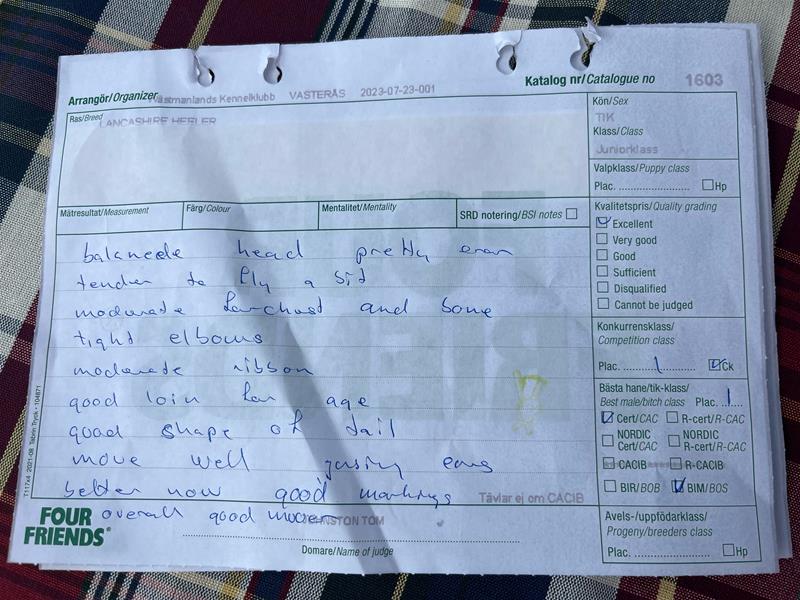 Arrangör/Organizer Västmanlands Kennelklubb VÄSTERÅS 2023-07-23-001
Katalog nr/Catalogue no 1603
Ras/Breed LANCASHIRE HEELER
Kön/Sex
TIK
Klass/Class
Juniorklass
Valpklass/Puppy class
Plac. Hp
Mätresultat/Measurement Färg/Colour Mentalitet/Mentality SRD notering/BSI notes
Kvalitetspris/Quality grading
Excellent
Very good
Good
Sufficient
Disqualified
Cannot be judged
balancede head pretty
tender to fly a sit
moderate forchest and bone
tight elbows
moderate ribbon
good loin for age
good shape of tail
move well ears
better now good markings
overall good
Konkurrensklass/
Competition class
Plac. 1 Ck
Bästa hane/tik-klass/
Best male/bitch class Plac. 1
Cert/CAC R-cert/R-CAC
NORDIC Cert/CAC NORDIC R-cert/R-CAC
CACIB R-CACIB
BIR/BOB BIM/BOS
Tävlar ej om CACIB
Avels-/uppfödarklass/
Progeny/breeders class
Plac. Hp
FOUR
FRIENDS
JOHNSTON TOM
Domare/Name of judge
T17x4 2021-08 Tabin Tryck • 104871